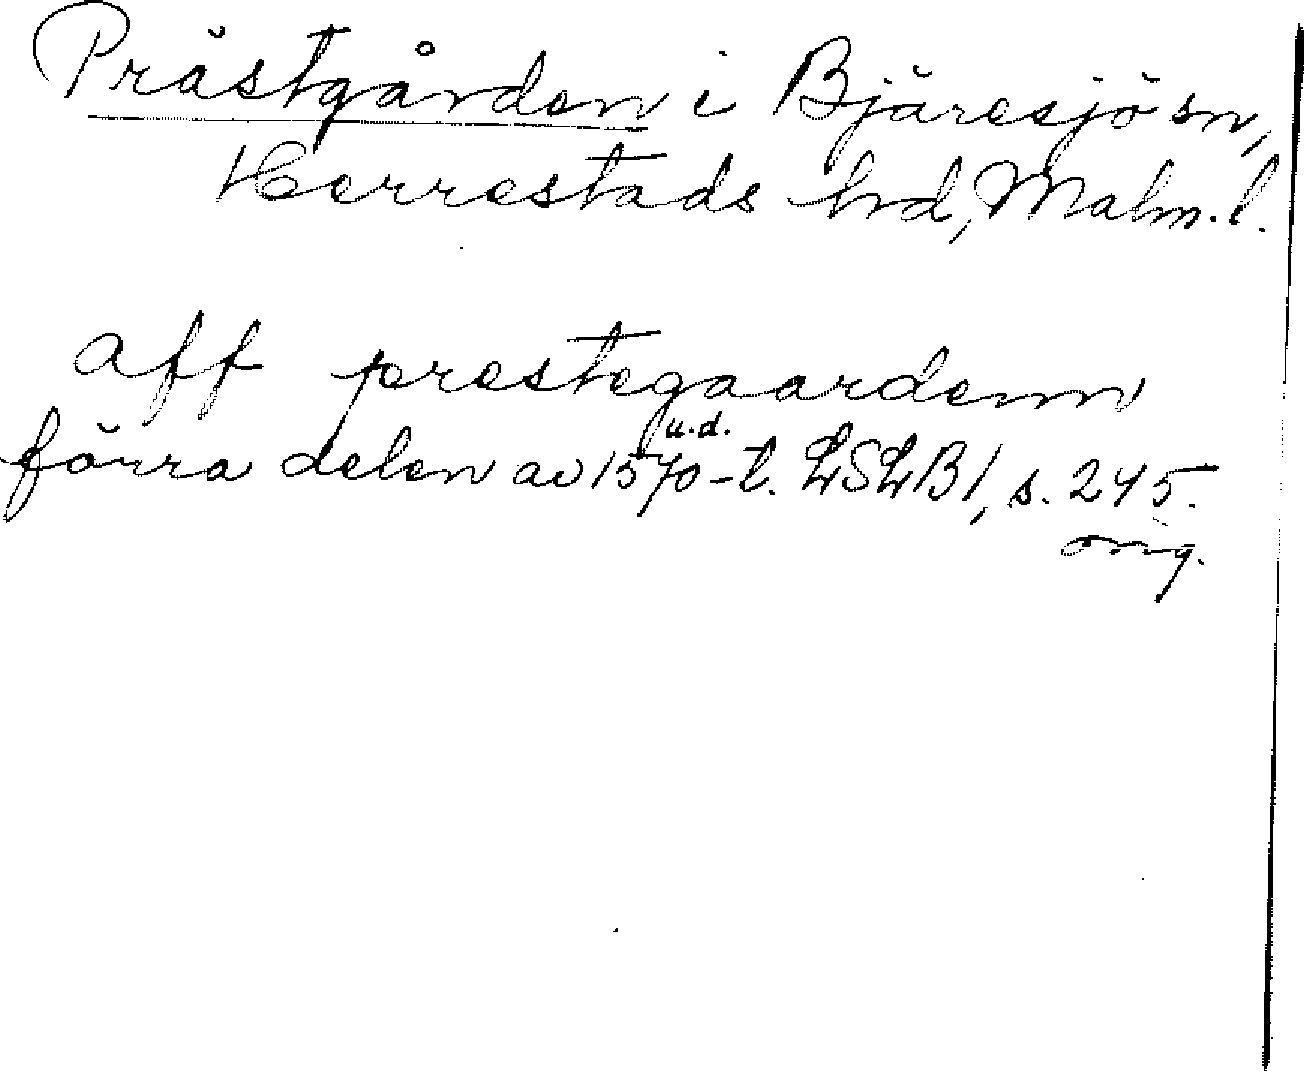 Prästgården i Bjäresjö sn,
Herrestads hrd, Malm. l.
aff prestegaardenn
u.d.
förra delen av 1570-t. LSLB1, s. 245.
orig.